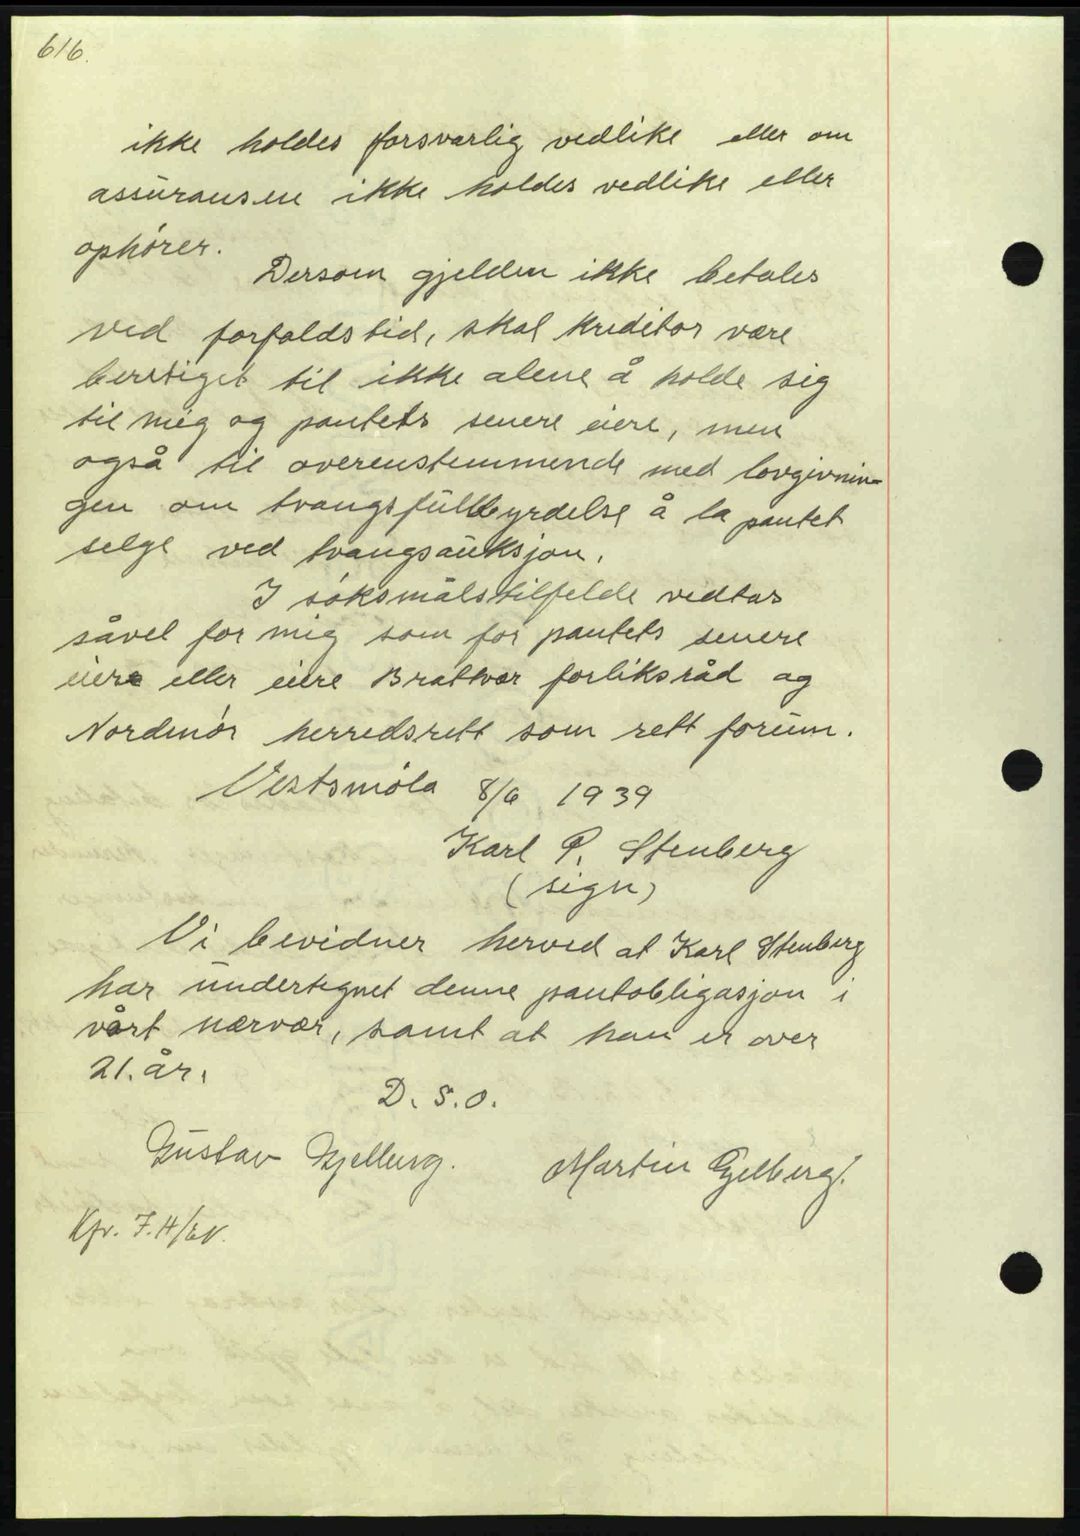 616.
ikke holdes forsvarlig vedlike eller om
assuransen ikke holdes vedlike eller
ophører.
Dersom gjelden ikke betales
ved forfaldstid, skal kreditor være
berettiget til ikke alene å holde sig
til mig og pantets senere eiere, men
også til overenstemmende med lovgivnin-
gen om tvangsfullbyrdelse å la pantet
selge ved tvangsauksjon.
I søksmålstilfelde vedtas
såvel for mig som for pantets senere
eier eller eiere Brattvær forliksråd og
Nordmør herredsrett som rett forum.
Vestsmøla 8/6 1939
Karl P. Stenberg
(sign)
Vi bevidner herved at Karl Stenberg
har undertegnet denne pantobligasjon i
vårt nærvær, samt at han er over
21. år.
D. S. O.
Gustav Gjelberg. Martin Gjelberg.
Kfr. F.H/EN.